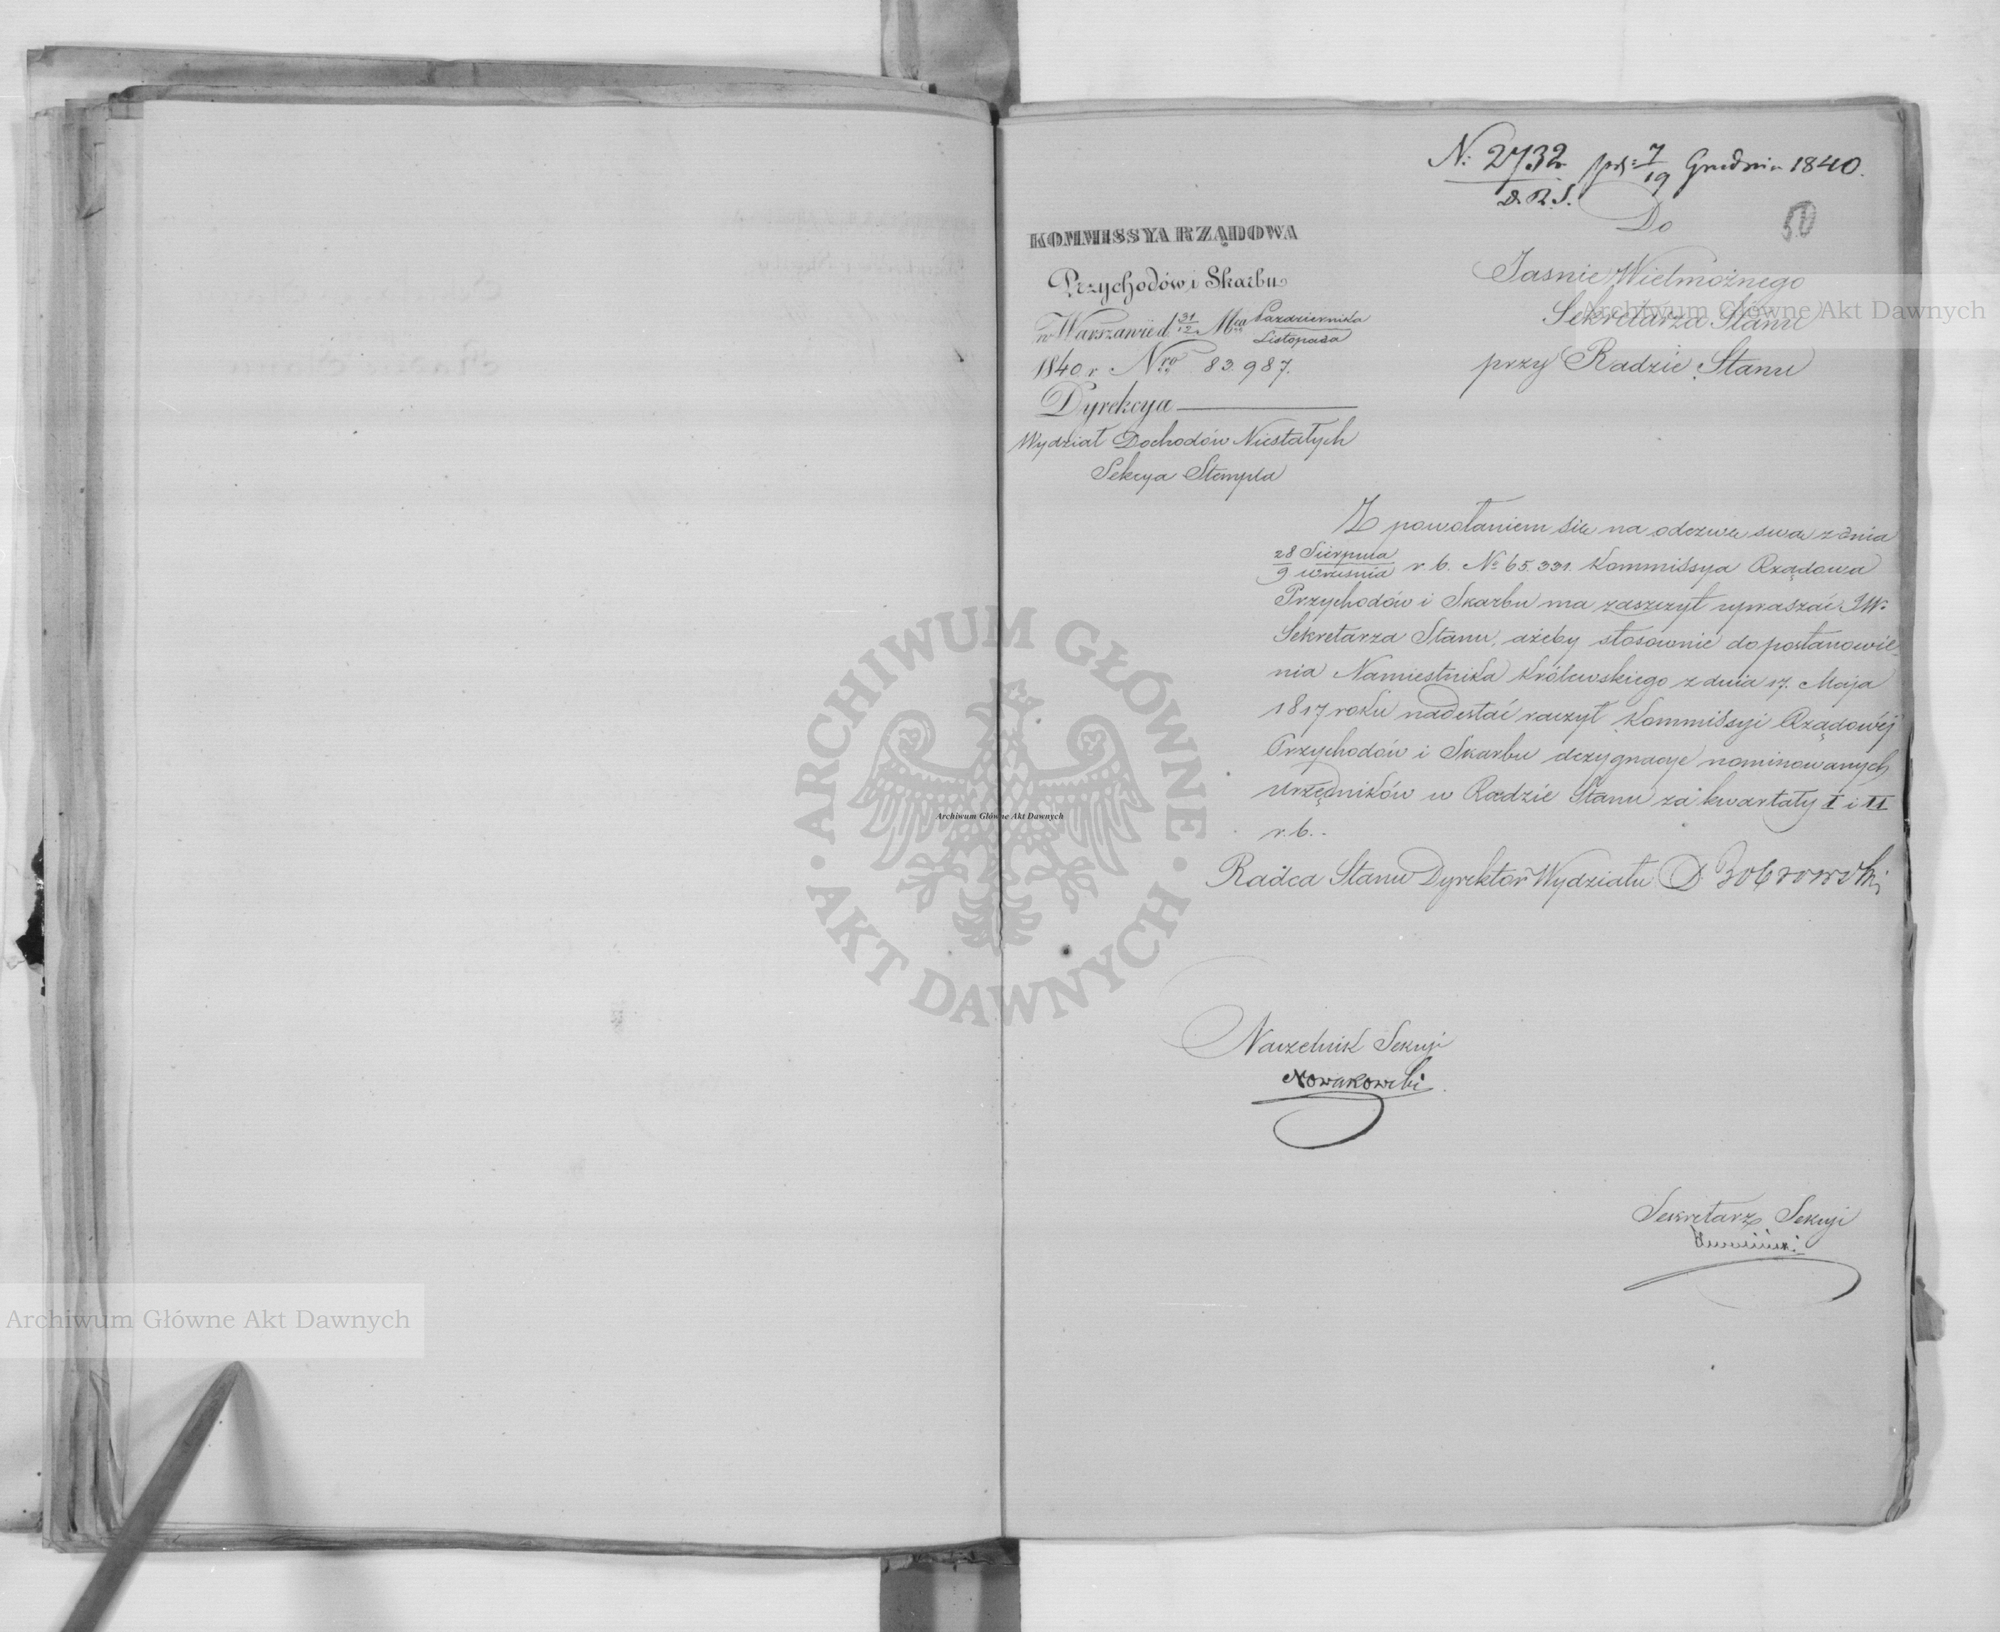 N: 2732 pr: 7/19 Grudnia 1840.
D. R. S.
50
KOMMISSYA RZĄDOWA
Przychodów i Skarbu
w Warszawie d. 31/12 Mca Października/Listopada
1840 r. Nro 83987.
Dyrekcya
Wydział Dochodów Niestałych
Sekcya Stempla
Do
Jaśnie Wielmożnego
Sekretarza Stanu
przy Radzie Stanu
Z powołaniem się na odezwę swą z dnia
28 Sierpnia/9 Września r. b. No 65.331. Kommissya Rządowa
Przychodów i Skarbu ma zaszczyt upraszać JW.
Sekretarza Stanu, ażeby stosownie do postanowie-
nia Namiestnika Królewskiego z dnia 17. Maja
1817 roku nadesłać raczył Kommissyi Rządowéj
Przychodów i Skarbu dezygnacye nominowanych
Urzędników w Radzie Stanu za kwartały I i II
r. b.
Radca Stanu Dyrektor Wydziału D. Bobrowski
Naczelnik Sekcyi
Nowakowski
Sekretarz Sekcyi
Archiwum Główne Akt Dawnych
Archiwum Główne Akt Dawnych
Archiwum Główne Akt Dawnych
ARCHIWUM GŁÓWNE AKT DAWNYCH